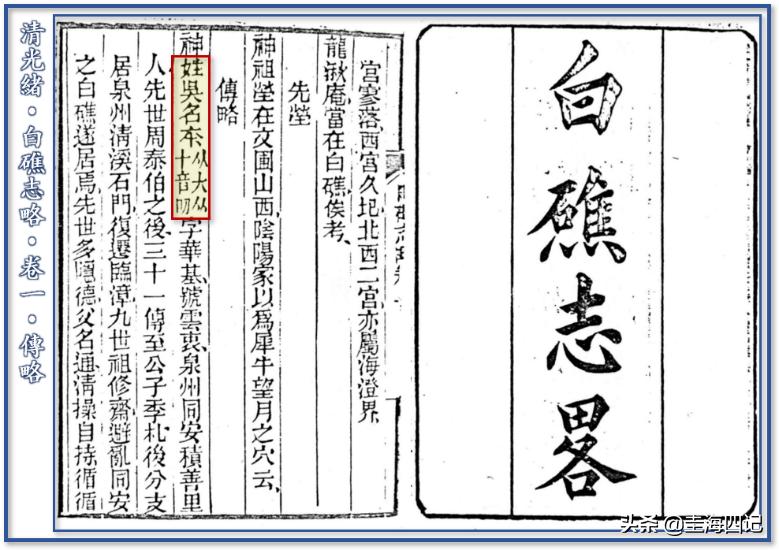 清光緒·白礁志略·卷一·傳略
白礁志畧
宫寥落西宫久圮北西二宫亦屬海澄界
龍湫庵當在白礁俟考
先塋
神祖塋在文圃山西陰陽家以爲犀牛望月之穴云
傳略
神姓吳名夲从大从十音叨字華基號雲衷泉州同安積善里
人先世周泰伯之後三十一傳至公子季札後分支
居泉州清溪石門復遷臨漳九世祖修齋避亂同安
之白礁遂居焉先世多隱德父名通清操自持循循
头条 @圭海四记